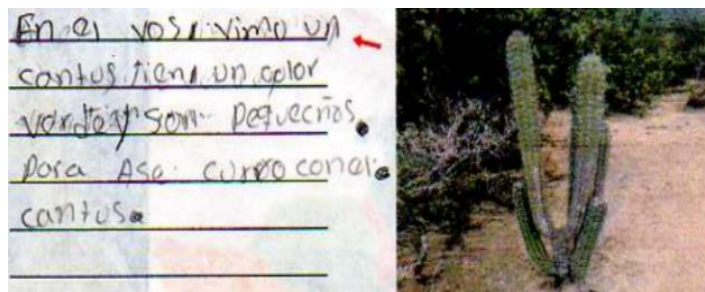 En el vos, vimo un
cantus. tiene un color
verde y son pequecños.
para Ase curpo con el.
cantus.